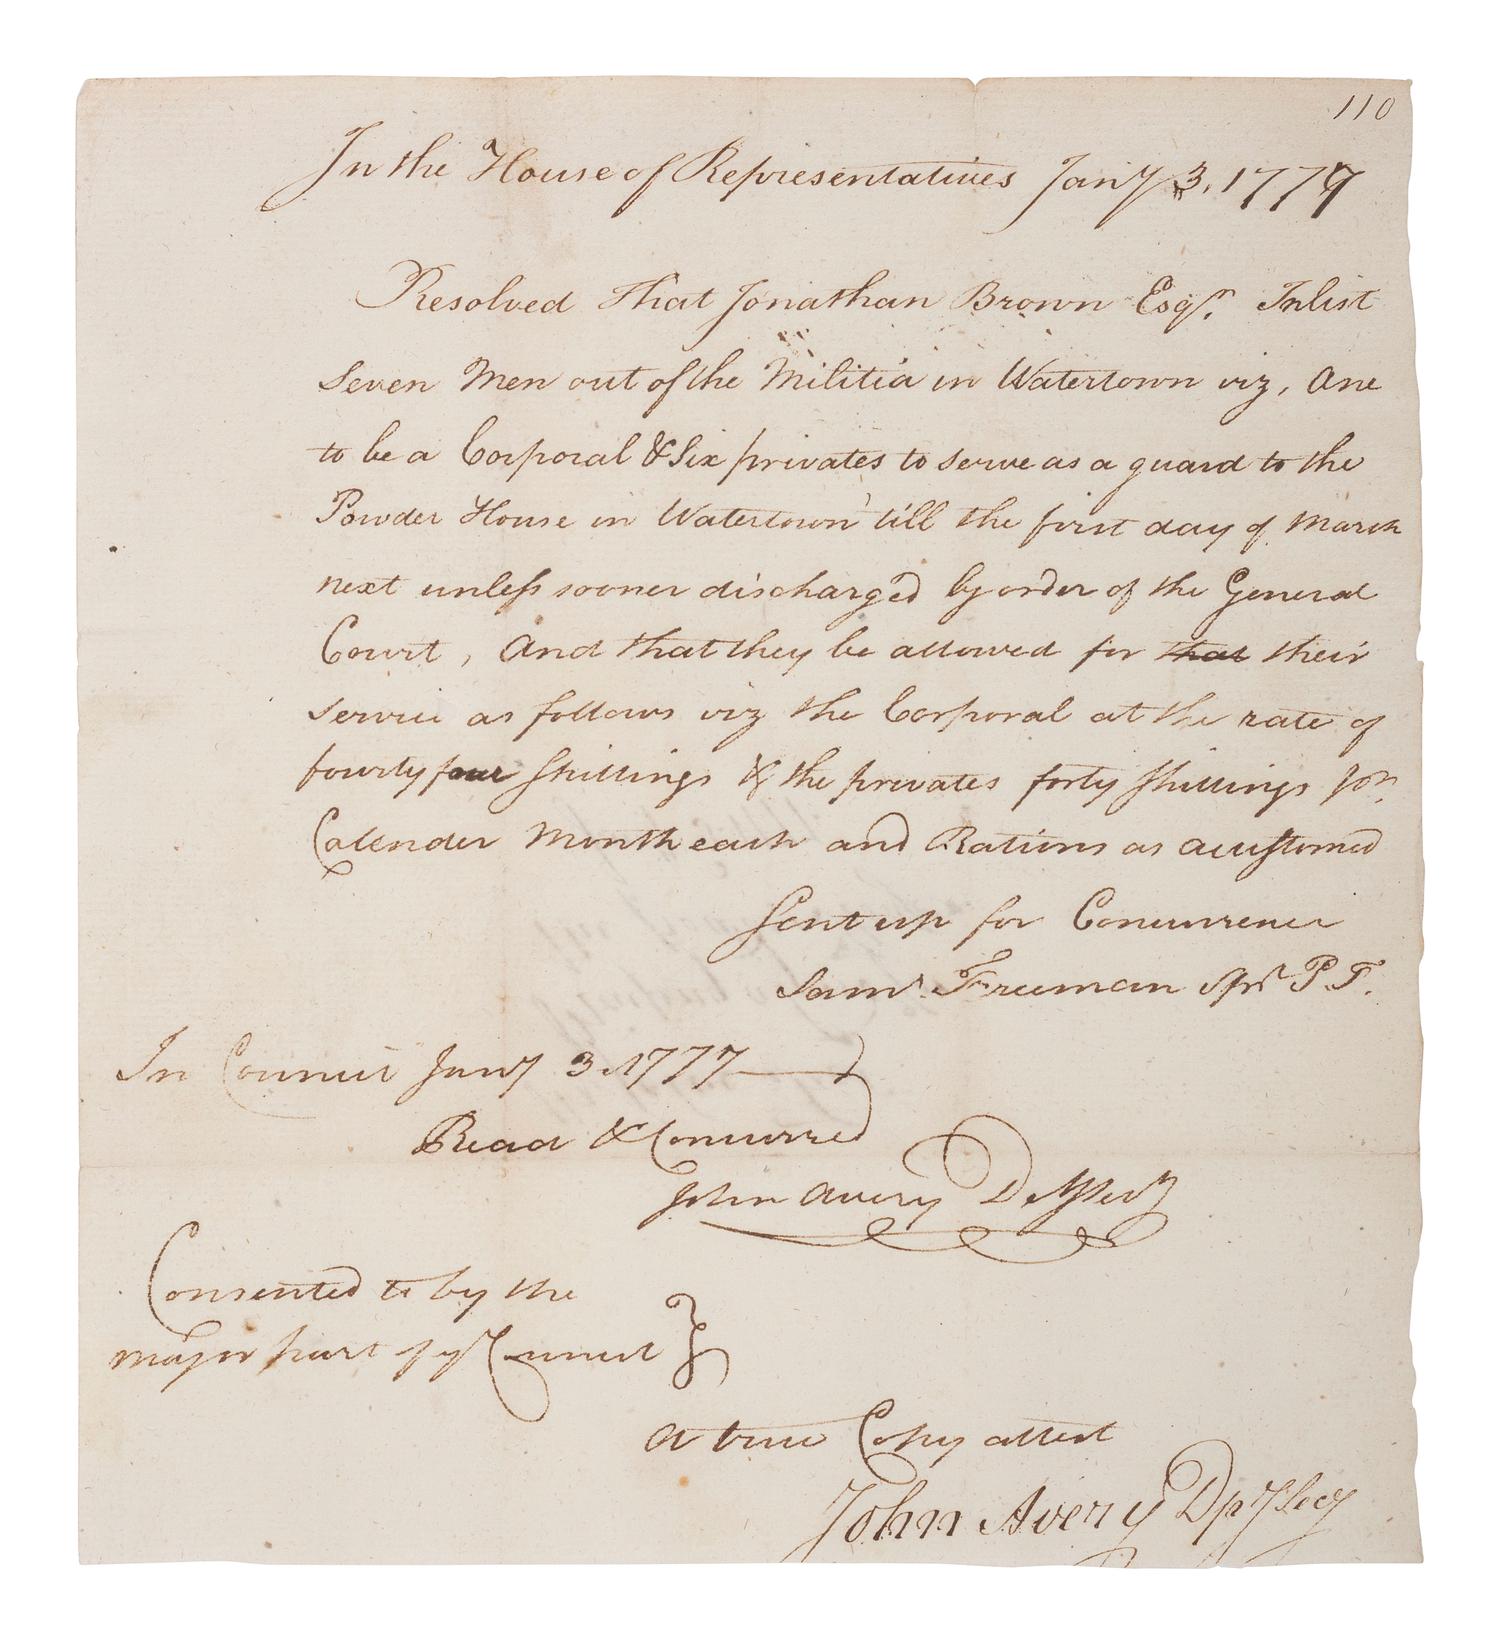 110
In the House of Representatives Jany 3. 1777
Resolved that Jonathan Brown Esqr. Inlist
Seven Men out of the Militia in Watertown viz, One
to be a Corporal & Six privates to serve as a guard to the
Powder House in Watertown till the first day of March
next unless sooner discharged by order of the General
Court, And that they be allowed for that their
service as follows viz the Corporal at the rate of
fourty four Shillings & the privates forty Shillings pr.
Calender Month each and Rations as accustomed
Sent up for Concurrence
Saml. Freeman Spkr P. T.
In Council Jany 3. 1777
Read & Concurred
John Avery Dpy Secy
Consented to by the
major part of ye Council
A true Copy attest
John Avery Dpy Secy